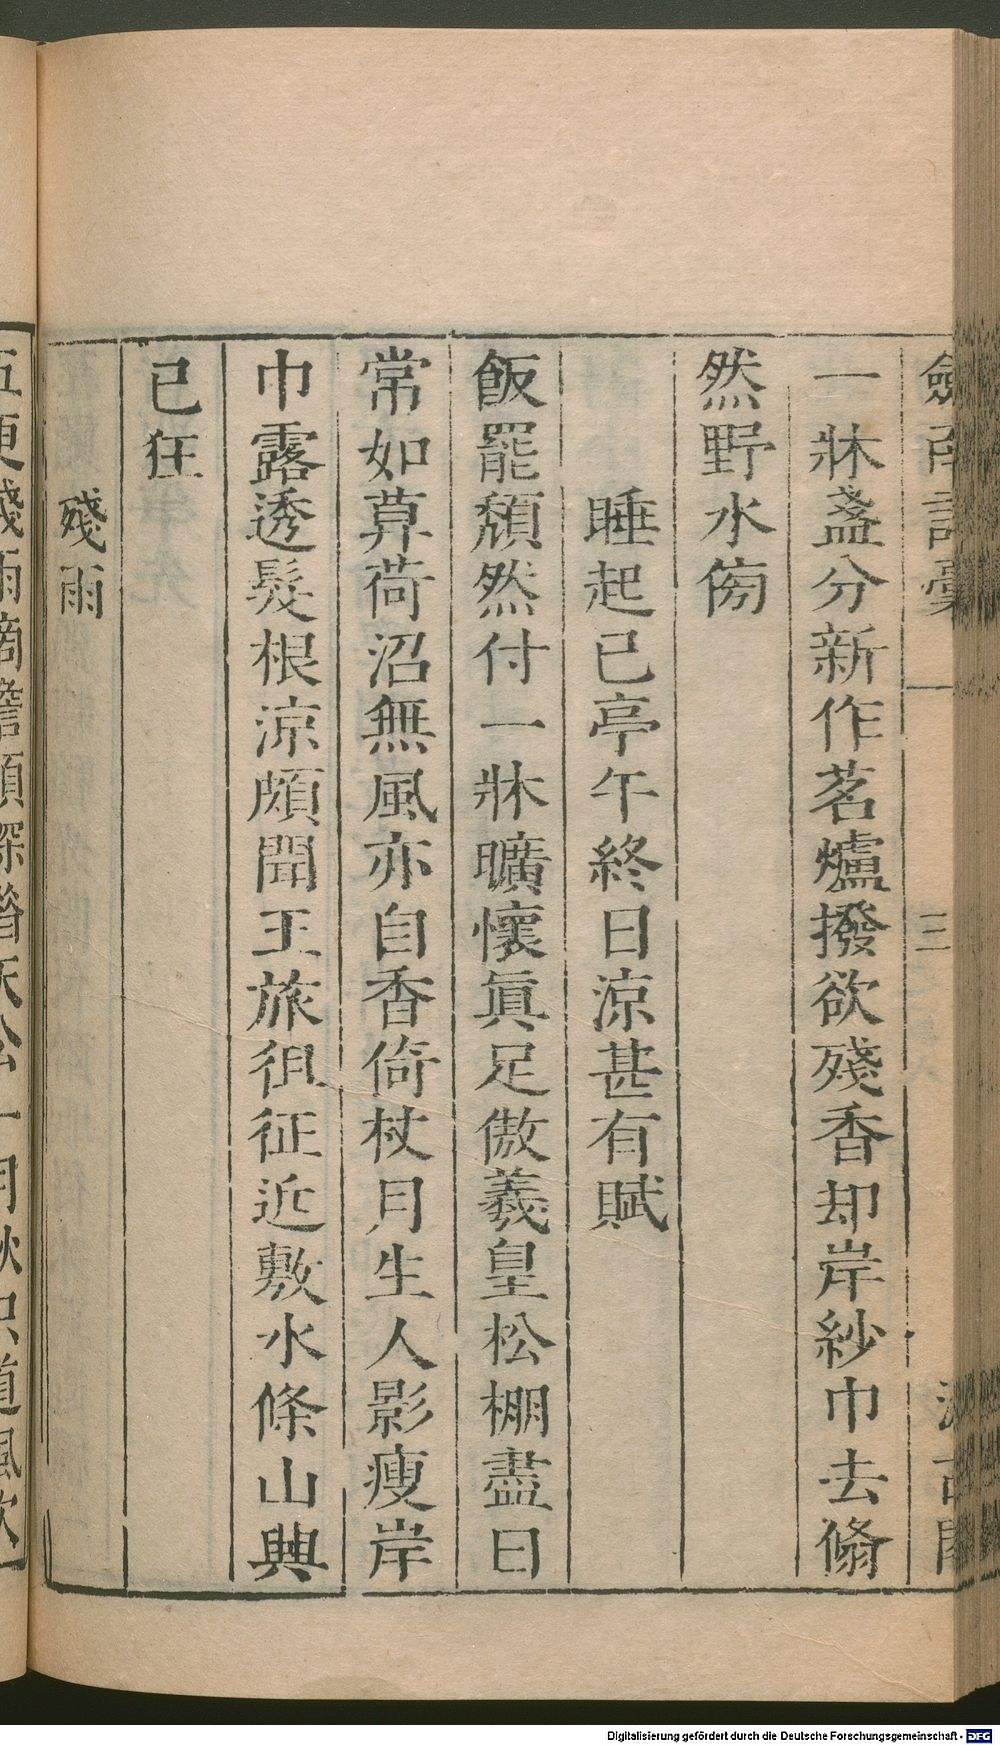 劍南詩稾
三
一牀盞分新作茗爐撥欲殘香却岸紗巾去翛
然野水傍
睡起已亭午終日涼甚有賦
飯罷頹然付一牀曠懷眞足傲羲皇松棚盡日
常如草荷沼無風亦自香倚杖月生人影瘦岸
巾露透髮根涼頗聞王旅徂征近敷水條山興
已狂
殘雨
五更殘雨滴簷頭探
一
秋只道風吹
Digitalisierung gefördert durch die Deutsche Forschungsgemeinschaft - DFG